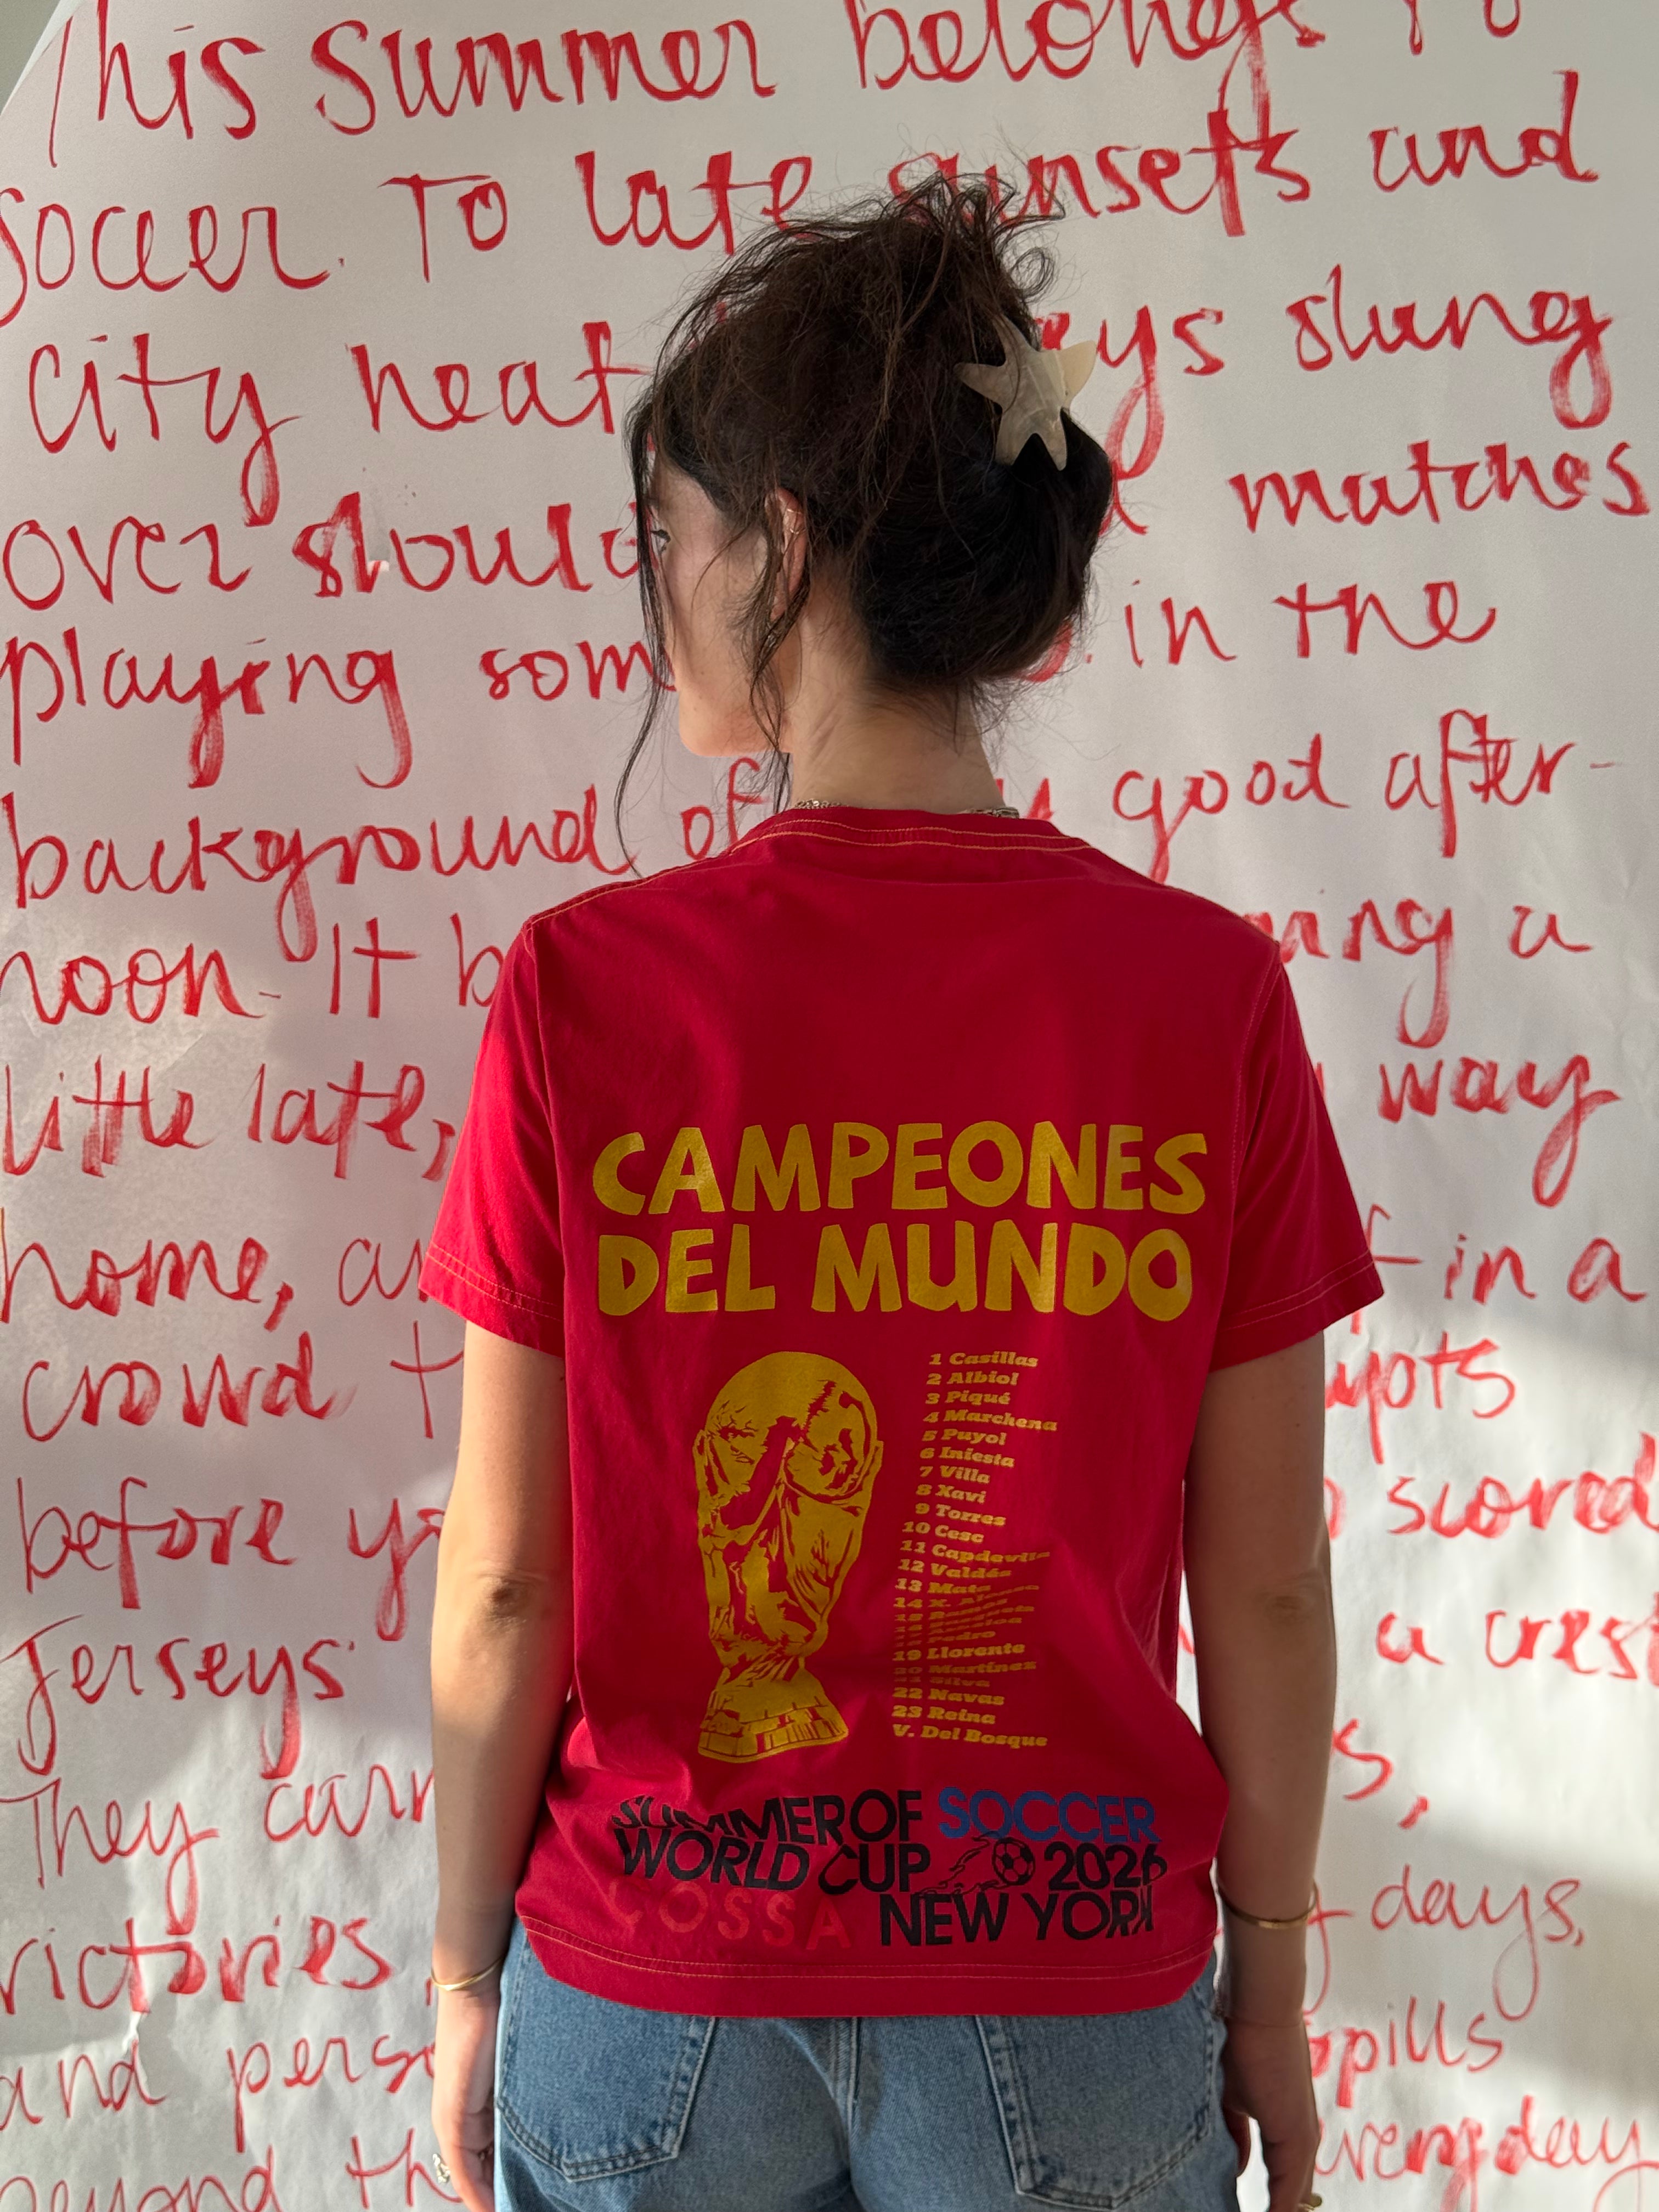 This Summer belongs to
Soccer. To late sunsets and
City heat eys slung
over should matches
playing som in the
background of good after-
noon. It b ning a
little late, way
home, an f in a
crowd t
before yo scored
Jerseys a crest
They carr s,
victories days,
and perso spills
beyond th everyday
CAMPEONES
DEL MUNDO
1 Casillas
2 Albiol
3 Piqué
4 Marchena
5 Puyol
6 Iniesta
7 Villa
8 Xavi
9 Torres
10 Cesc
11 Capdevila
12 Valdés
13 Mata
14 X. Alonso
Pedro
19 Llorente
20 Martínez
21 Silva
22 Navas
23 Reina
V. Del Bosque
SUMMER OF SOCCER
WORLD CUP 2026
COSSA NEW YORK